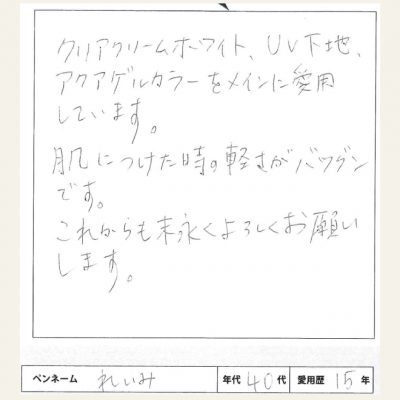 クリアクリームホワイト、UV下地、
アクアゲルカラーをメインに愛用
しています。
肌につけた時の軽さがバツグン
です。
これからも末永くよろしくお願い
します。
ペンネーム れいみ 年代 40代 愛用歴 15年